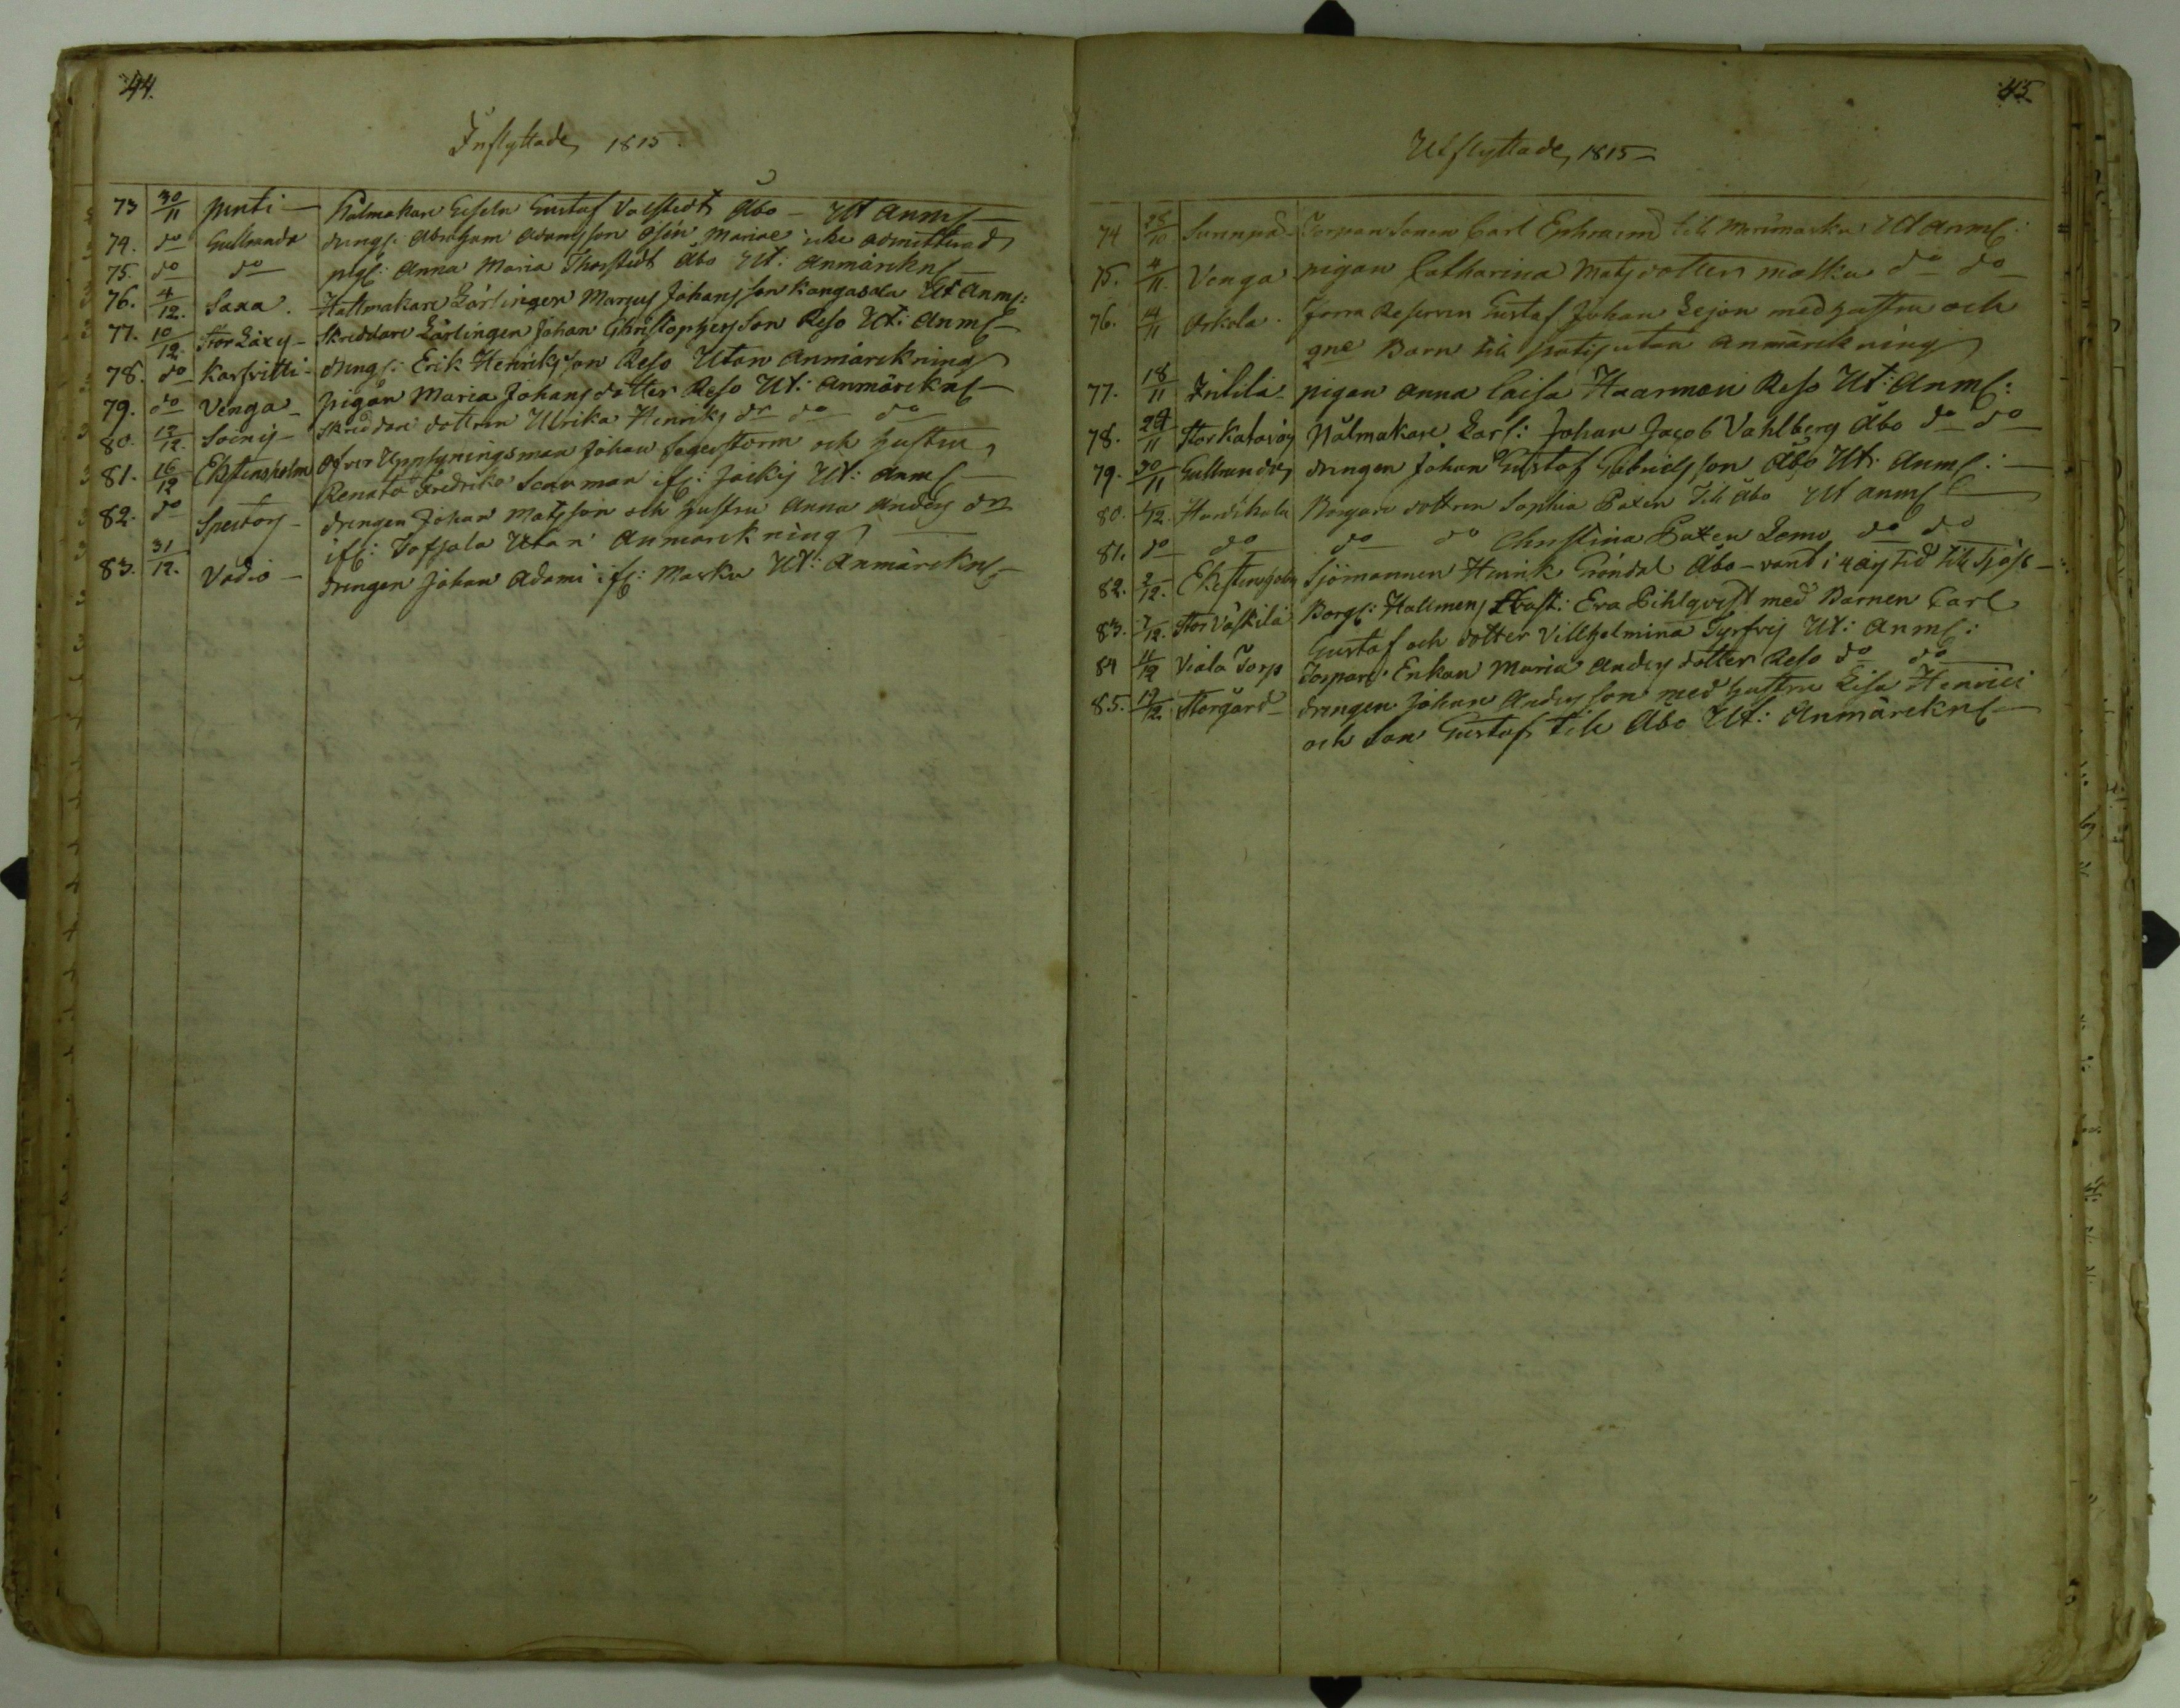 44.
Inflyttade, 1815.
73 30/11 Penti — Gustaf Valstedt Åbo — Ut Anm:
74. do Gullranda drengs: Abraham Adamsson Mariæ icke admitterad
75. do do pigs: Anna Maria Thorstedt Åbo Ut: Anmärkn:
76. 4/12. Saxa. Hattmakare Lärlingen Johansson Kangasala Ut Anm:
77. 10/12. Skreddare Lärlingen Johan Christophersson Reso Ut: Anm:
78. do Karsvitti — drengs: Erik Henriksson Reso Utan Anmärkning
79. do Venga — pigan Maria Johansdotter Reso Ut: Anmärkn:
80. 12/12. Soinis — Skreddare dottren Ulrika Henriks dr do do
81. 16/12 Ekstensholm Öfver Upsyningsman Johan och hustru
Renata Fredrika Scarman ifr: Ut: Anm:
82. do drengen Johan Matsson och hustru Anna Anders dr
ifr: Utan Anmärkning
83. 31/12. Vadio — drengen Johan Adami ifr: Masku Ut: Anmärkn:
45.
Utflyttade, 1815 —
74 28/10 Torpare Sonen Carl Ephraim till Merimasku Ut Anm:
75. 4/11. Venga pigan Catharina Matsdotter Masku do do
76. 14/11 Arkola. förra Gustaf Johan Lejon med hustru och
2ne Barn till utan anmärkning
77. 18/11 pigan Anna Caisa Haarman Reso Ut: Anm:
78. 24/11 Nålmakare Lärl: Johan Jacob Vahlberg Åbo do do
79. 30/11 Gullranda, drengen Johan Gustaf Gabrielsson Åbo Ut: Anm: —
80. 1/12. Borgare dottren Sophia Till Åbo Ut Anm:
81. do do do do Christina Lemo do do
82. 2/12. Ekstensholm Sjömannen Henrik Gröndal Åbo — varit i 4 års tid till sjös —
83. 7/12. Stor Väskilä Borgs: Eva Pihlqvist med Barnen Carl
Gustaf och dotter Villhelmina Ut: Anm:
84 11/12 Viala Torp Torpare Enkan Maria Anders dotter Reso do do
85. 17/12 Storgård — drengen Johan Andersson med hustru Lisa Henrici
och Son Gustaf till Åbo Ut: Anmärkn: